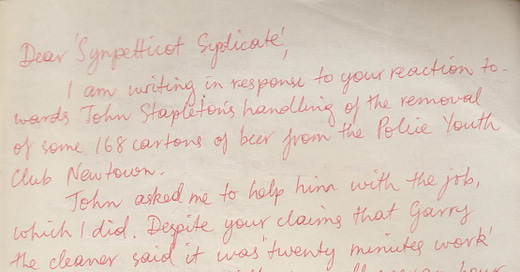 Dear 'Sympetticot Syndicate',
I am writing in response to your reaction to-
wards John Stapleton's handling of the removal
of some 168 cartons of beer from the Police Youth
Club Newtown.
John asked me to help him with the job,
which I did. Despite your claims that Garry
the cleaner said it was 'twenty minutes work'
hour